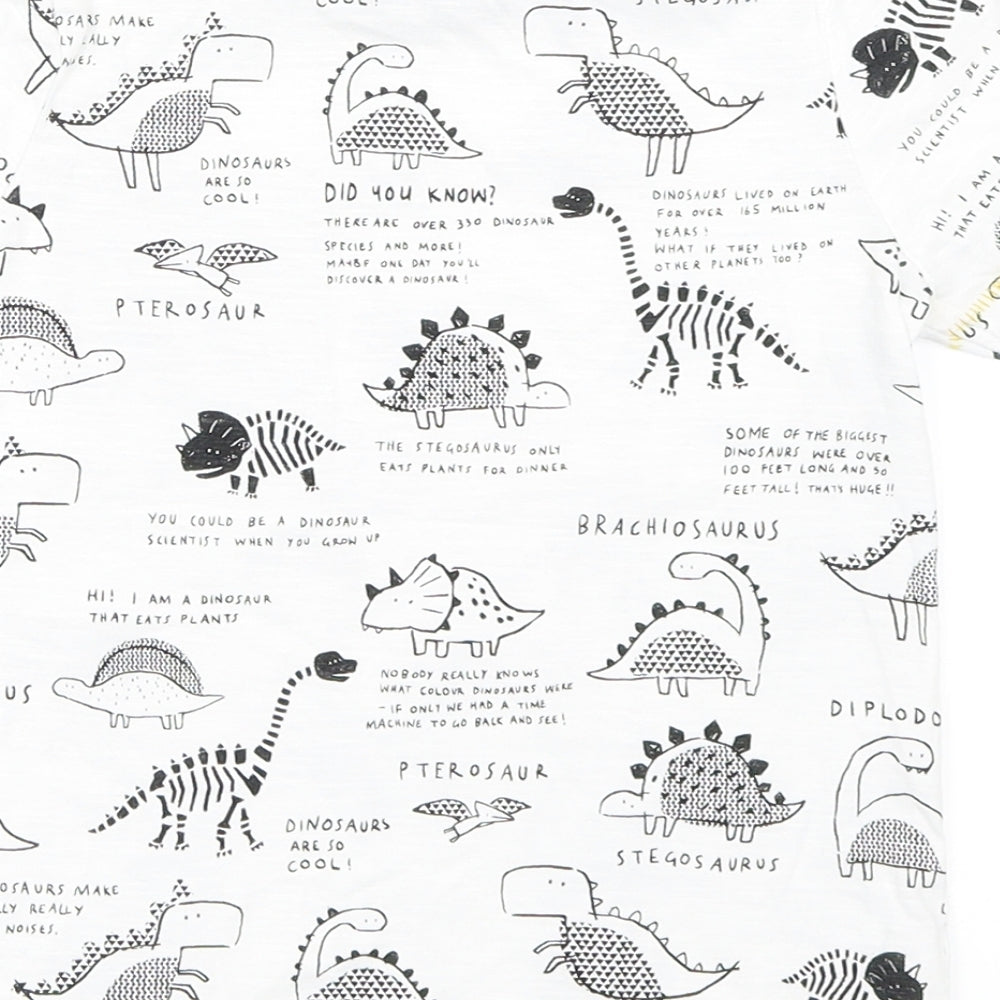 COOL!
STEGOSAU
OSARS MAKE
LY LALLY
YOU COULD BE A
SCIENTIST WHEN
DINOSAURS
ARE SO
COOL!
DID YOU KNOW?
THERE ARE OVER 330 DINOSAUR
SPECIES AND MORE!
MAYBE ONE DAY YOU'LL
DISCOVER A DINOSAUR!
DINOSAURS LIVED ON EARTH
FOR OVER 165 MILLION
YEARS!
WHAT IF THEY LIVED ON
OTHER PLANETS TOO?
HI! I AM A
THAT EATS
PTEROSAUR
US
THE STEGOSAURUS ONLY
EATS PLANTS FOR DINNER
SOME OF THE BIGGEST
DINOSAURS WERE OVER
100 FEET LONG AND 50
FEET TALL! THAT'S HUGE!!
YOU COULD BE A DINOSAUR
SCIENTIST WHEN YOU GROW UP
BRACHIOSAURUS
HI! I AM A DINOSAUR
THAT EATS PLANTS
NOBODY REALLY KNOWS
WHAT COLOUR DINOSAURS WERE
- IF ONLY WE HAD A TIME
MACHINE TO GO BACK AND SEE!
US
DIPLODO
PTEROSAUR
DINOSAURS
ARE SO
COOL!
STEGOSAURUS
OSAURS MAKE
LLY REALLY
NOISES.